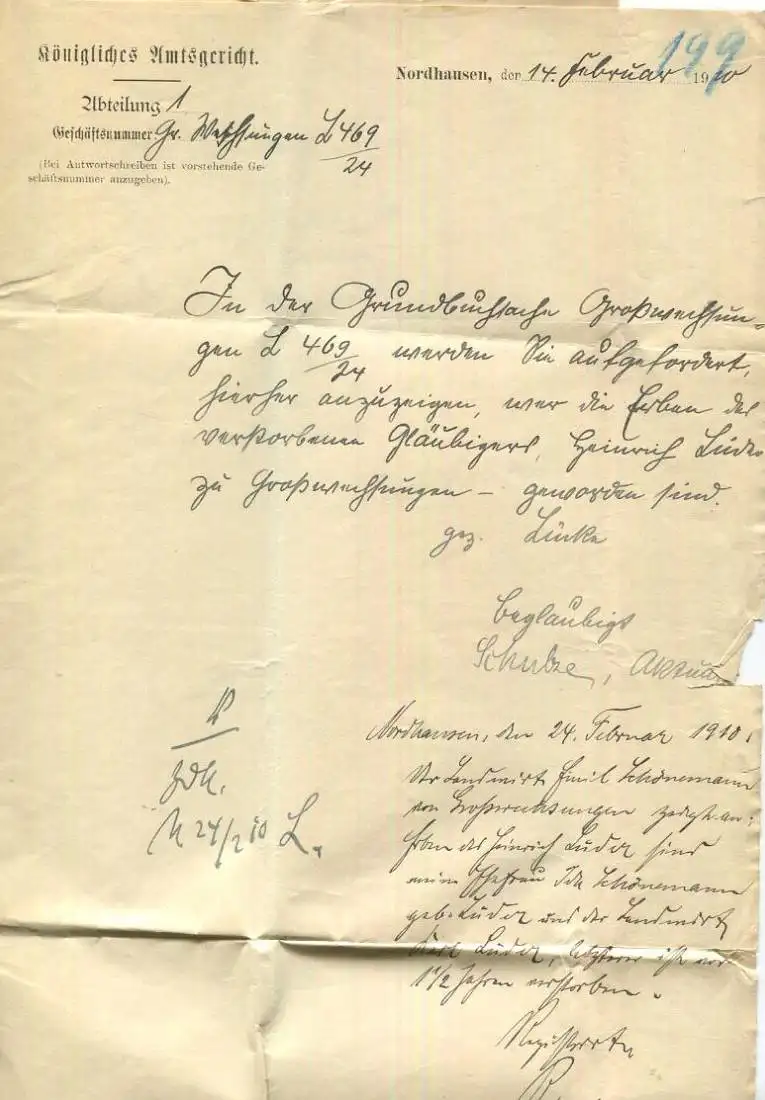 199
Königliches Amtsgericht.
Nordhausen, den 14. Februar 1910
Abteilung 1
Geschäftsnummer: Gr. Wechsungen L 469/24
(Bei Antwortschreiben ist vorstehende Ge-
schäftsnummer anzugeben).
In der Grundbuchsache Großwechsun-
gen L 469/24 werden Sie aufgefordert,
hierher anzuzeigen, wer die Erben des
verstorbenen Gläubigers, Heinrich Luder
zu Großwechsungen – geworden sind.
gez. Lücke
Beglaubigt
Schulze, Aktuar
Nordhausen, den 24. Februar 1910.
Der Landwirt Emil Schönemann
von Großwechsungen zeigt an:
Erben des Heinrich Luder sind
meine Ehefrau Ida Schönemann
geb. Luder und der Landwirt
Karl Luder, letzterer ist vor
1 1/2 Jahren verstorben.
24/2 10 L.